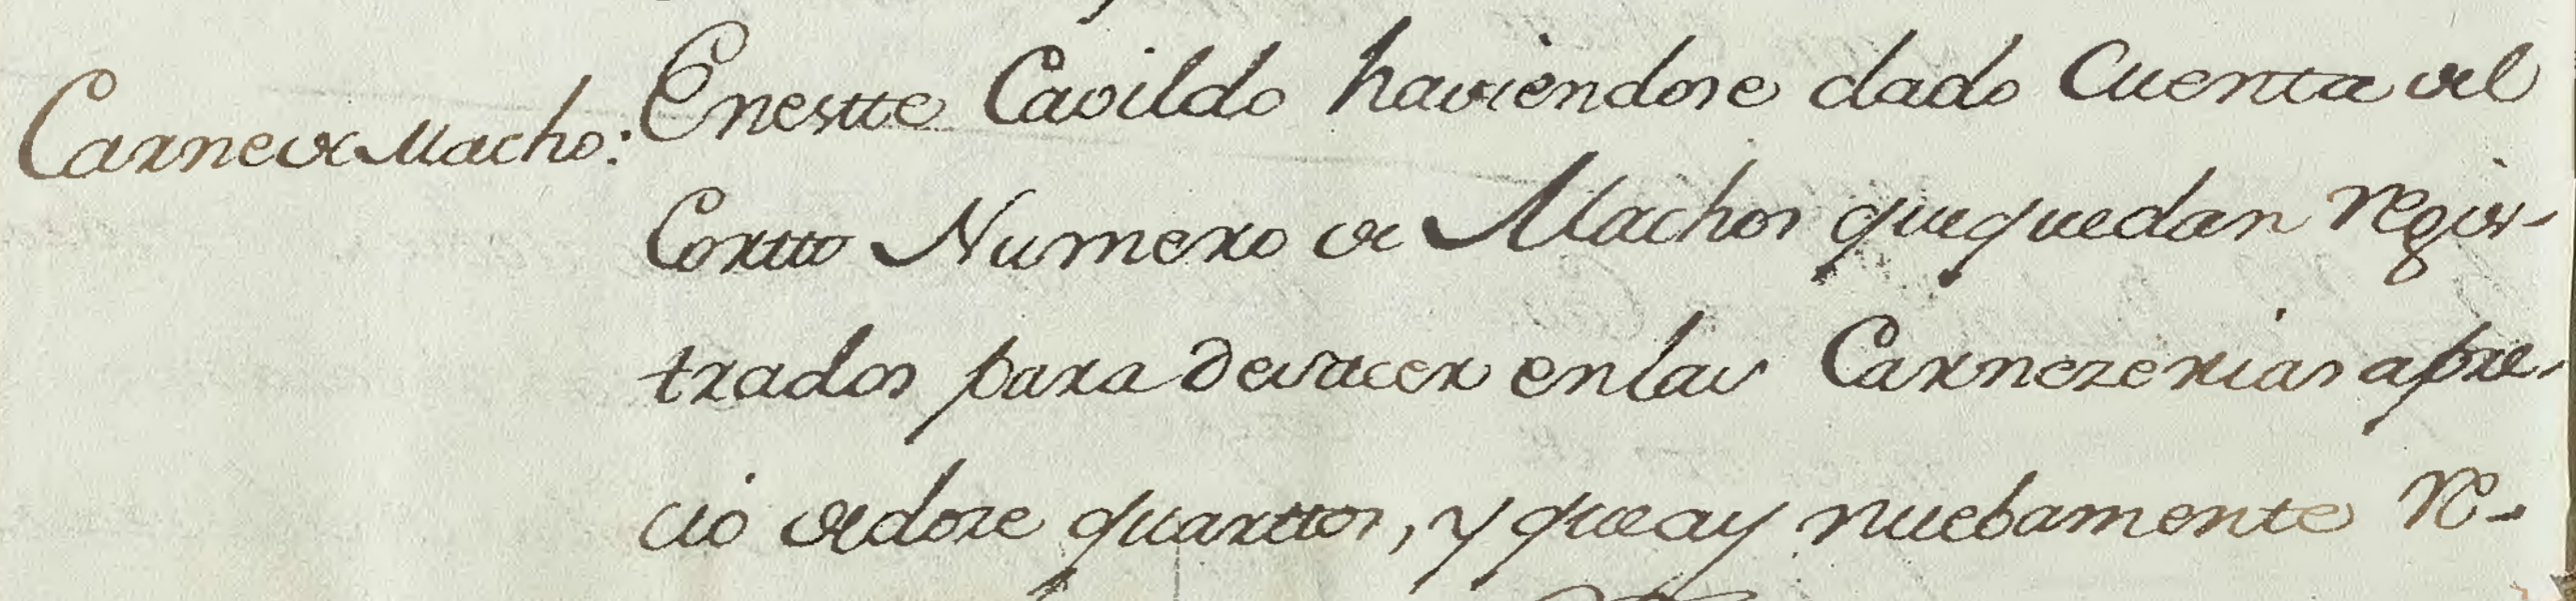 Carne de Macho:
En estte Cavildo haviendose dado Cuenta del
Cortto Numero de Machos que quedan regis-
trados para devacer en las Carnezerias a pre-
cio de doze quarttos, y que ay nuebamente re-